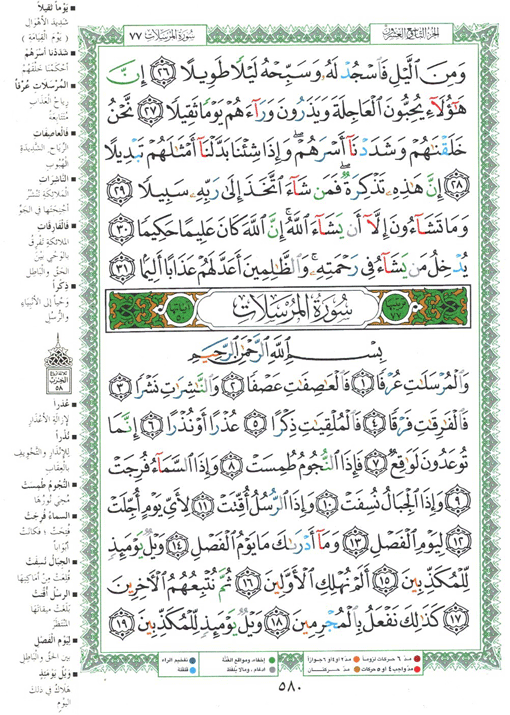 سُورَةُ المُرْسَلَات ٧٧
الجزء التاسع والعشرون
وَمِنَ ٱلَّيْلِ فَٱسْجُدْ لَهُۥ وَسَبِّحْهُ لَيْلًا طَوِيلًا ٢٦ إِنَّ
هَٰٓؤُلَآءِ يُحِبُّونَ ٱلْعَاجِلَةَ وَيَذَرُونَ وَرَآءَهُمْ يَوْمًا ثَقِيلًا ٢٧ نَّحْنُ
خَلَقْنَٰهُمْ وَشَدَدْنَآ أَسْرَهُمْ ۖ وَإِذَا شِئْنَا بَدَّلْنَآ أَمْثَٰلَهُمْ تَبْدِيلًا
٢٨ إِنَّ هَٰذِهِۦ تَذْكِرَةٌ ۖ فَمَن شَآءَ ٱتَّخَذَ إِلَىٰ رَبِّهِۦ سَبِيلًا ٢٩
وَمَا تَشَآءُونَ إِلَّآ أَن يَشَآءَ ٱللَّهُ ۚ إِنَّ ٱللَّهَ كَانَ عَلِيمًا حَكِيمًا ٣٠
يُدْخِلُ مَن يَشَآءُ فِى رَحْمَتِهِۦ ۚ وَٱلظَّٰلِمِينَ أَعَدَّ لَهُمْ عَذَابًا أَلِيمًۢا ٣١
سُورَةُ المُرْسَلَات
بِسْمِ ٱللَّهِ ٱلرَّحْمَٰنِ ٱلرَّحِيمِ
وَٱلْمُرْسَلَٰتِ عُرْفًا ١ فَٱلْعَٰصِفَٰتِ عَصْفًا ٢ وَٱلنَّٰشِرَٰتِ نَشْرًا ٣
فَٱلْفَٰرِقَٰتِ فَرْقًا ٤ فَٱلْمُلْقِيَٰتِ ذِكْرًا ٥ عُذْرًا أَوْ نُذْرًا ٦ إِنَّمَا
تُوعَدُونَ لَوَٰقِعٌ ٧ فَإِذَا ٱلنُّجُومُ طُمِسَتْ ٨ وَإِذَا ٱلسَّمَآءُ فُرِجَتْ
٩ وَإِذَا ٱلْجِبَالُ نُسِفَتْ ١٠ وَإِذَا ٱلرُّسُلُ أُقِّتَتْ ١١ لِأَىِّ يَوْمٍ أُجِّلَتْ
١٢ لِيَوْمِ ٱلْفَصْلِ ١٣ وَمَآ أَدْرَىٰكَ مَا يَوْمُ ٱلْفَصْلِ ١٤ وَيْلٌ يَوْمَئِذٍ
لِّلْمُكَذِّبِينَ ١٥ أَلَمْ نُهْلِكِ ٱلْأَوَّلِينَ ١٦ ثُمَّ نُتْبِعُهُمُ ٱلْءَاخِرِينَ
١٧ كَذَٰلِكَ نَفْعَلُ بِٱلْمُجْرِمِينَ ١٨ وَيْلٌ يَوْمَئِذٍ لِّلْمُكَذِّبِينَ ١٩
يَوْمًا ثَقِيلًا
شَدِيدَ الأَهْوَالِ
( يَوْمَ القِيَامَةِ )
شَدَدْنَا أَسْرَهُمْ
أَحْكَمْنَا خَلْقَهُمْ
المُرْسَلَاتِ عُرْفًا
رِيَاحِ العَذَابِ
مُتَتَابِعَةً
فَالعَاصِفَاتِ
الرِّيَاحِ الشَّدِيدَةِ
الهُبُوبِ
النَّاشِرَاتِ
المَلَائِكَةِ تَنْشُرُ
أَجْنِحَتَهَا فِي الجَوِّ
فَالفَارِقَاتِ
المَلَائِكَةِ تُفَرِّقُ
بِالوَحْيِ بَيْنَ
الحَقِّ وَالبَاطِلِ
ذِكْرًا
وَحْيًا إِلَى الأَنْبِيَاءِ
وَالرُّسُلِ
الحِزْب
٥٨
عُذْرًا
لِإِزَالَةِ الأَعْذَارِ
نُذْرًا
لِلإِنْذَارِ وَالتَّخْوِيفِ
بِالعِقَابِ
النُّجُومُ طُمِسَتْ
مُحِيَ نُورُهَا
السَّمَاءُ فُرِجَتْ
فُتِحَتْ ؛ فَكَانَتْ
أَبْوَابًا
الجِبَالُ نُسِفَتْ
قُلِعَتْ مِنْ أَمَاكِنِهَا
الرُّسُلُ أُقِّتَتْ
بَلَغَتْ مِيقَاتَهَا
المُنْتَظَرَ
لِيَوْمِ الفَصْلِ
بَيْنَ الحَقِّ وَالبَاطِلِ
وَيْلٌ يَوْمَئِذٍ
هَلَاكٌ فِي ذَلِكَ
اليَوْمِ
مدّ ٦ حركات لزوماً
مدّ ٢ أو ٤ أو ٦ جوازاً
مدّ واجب ٤ أو ٥ حركات
مدّ حركتان
إخفاء، ومواقع الغُنَّة
ادغام، وما لا يُلفَظ
تفخيم الراء
قلقلة
٥٨٠